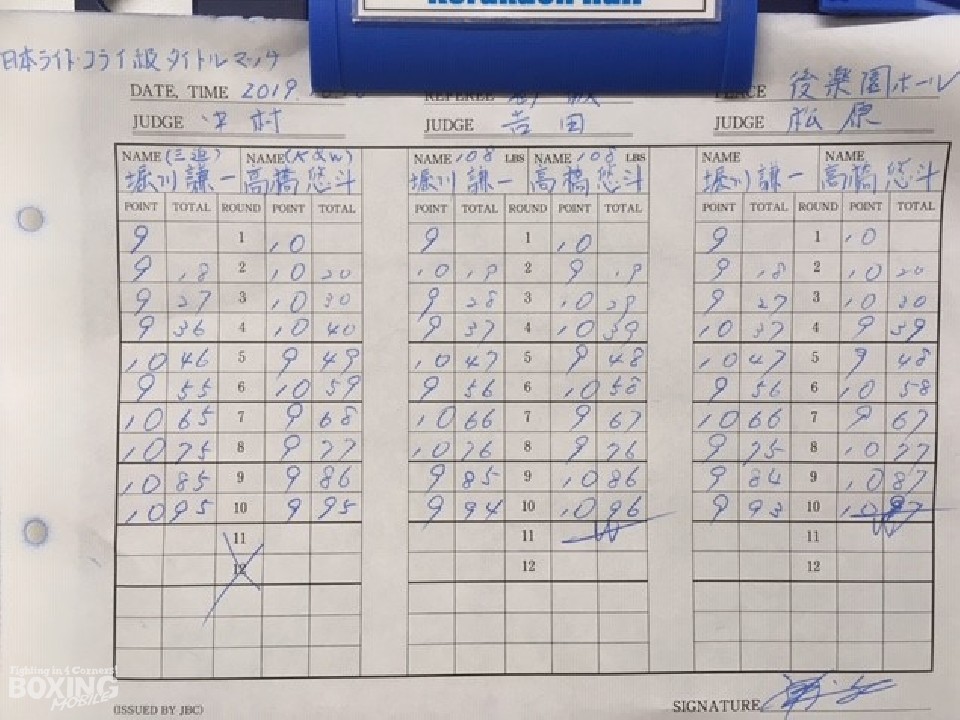 Korakuen Hall
日本ライト・フライ級タイトルマッチ
DATE, TIME 2019. REFEREE PLACE 後楽園ホール
JUDGE 中村 JUDGE 吉田 JUDGE 松原
NAME (三迫) NAME (K&W) NAME 108 LBS NAME 108 LBS NAME NAME
堀川謙一 高橋悠斗 堀川謙一 高橋悠斗 堀川謙一 高橋悠斗
POINT TOTAL ROUND POINT TOTAL POINT TOTAL ROUND POINT TOTAL POINT TOTAL ROUND POINT TOTAL
9 1 10 9 1 10 9 1 10
9 18 2 10 20 10 19 2 9 19 9 18 2 10 20
9 27 3 10 30 9 28 3 10 29 9 27 3 10 30
9 36 4 10 40 9 37 4 10 39 10 37 4 9 39
10 46 5 9 49 10 47 5 9 48 10 47 5 9 48
9 55 6 10 59 9 56 6 10 58 9 56 6 10 58
10 65 7 9 68 10 66 7 9 67 10 66 7 9 67
10 75 8 9 77 10 76 8 9 76 9 75 8 10 77
10 85 9 9 86 9 85 9 10 86 9 84 9 10 87
10 95 10 9 95 9 94 10 10 96 9 93 10 10 97
11 11 W 11 W
12 12 12
Fighting in 4 Corners!
BOXING
MOBILE
(ISSUED BY JBC) SIGNATURE